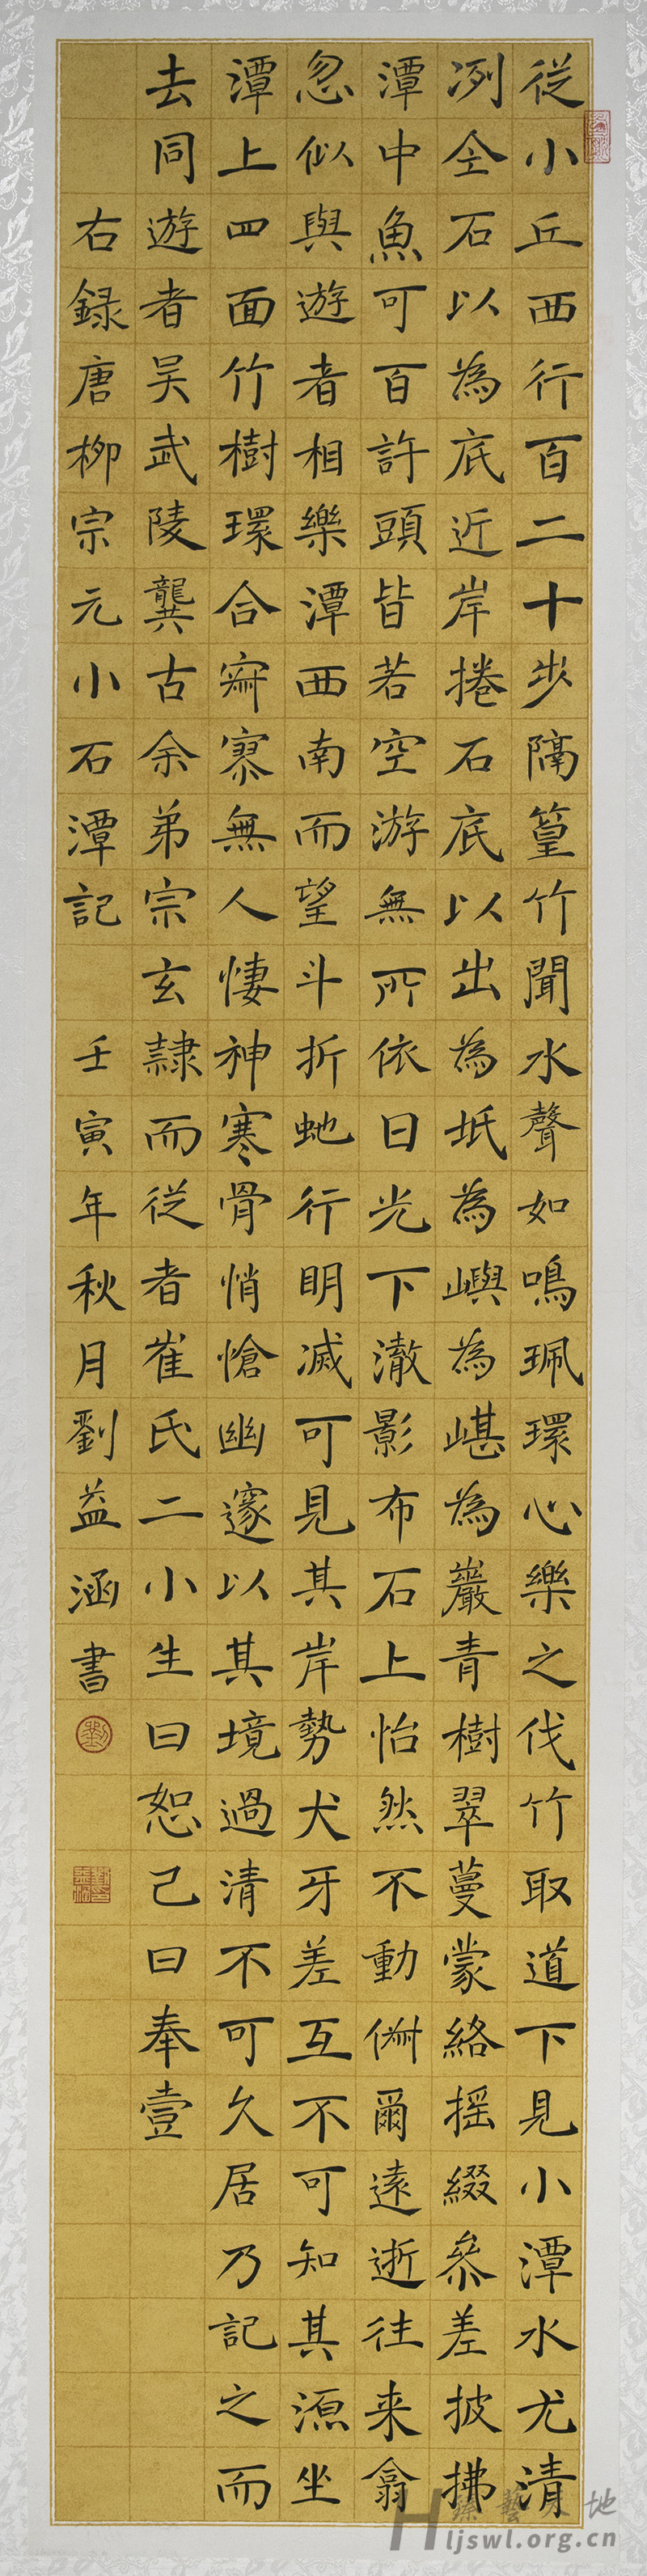 從小丘西行百二十步隔篁竹聞水聲如鳴珮環心樂之伐竹取道下見小潭水尤清
冽全石以為底近岸捲石底以出為坻為嶼為嵁為巖青樹翠蔓蒙絡摇綴參差披拂
潭中魚可百許頭皆若空游無所依日光下澈影布石上怡然不動俶爾遠逝往来翕
忽似與遊者相樂潭西南而望斗折虵行明滅可見其岸勢犬牙差互不可知其源坐
潭上四面竹樹環合寂寥無人悽神寒骨悄愴幽邃以其境過清不可久居乃記之而
去同遊者吴武陵龔古余弟宗玄隷而從者崔氏二小生曰恕己曰奉壹
右録唐柳宗元小石潭記 壬寅年秋月劉益涵書
劉
ljswl.org.cn